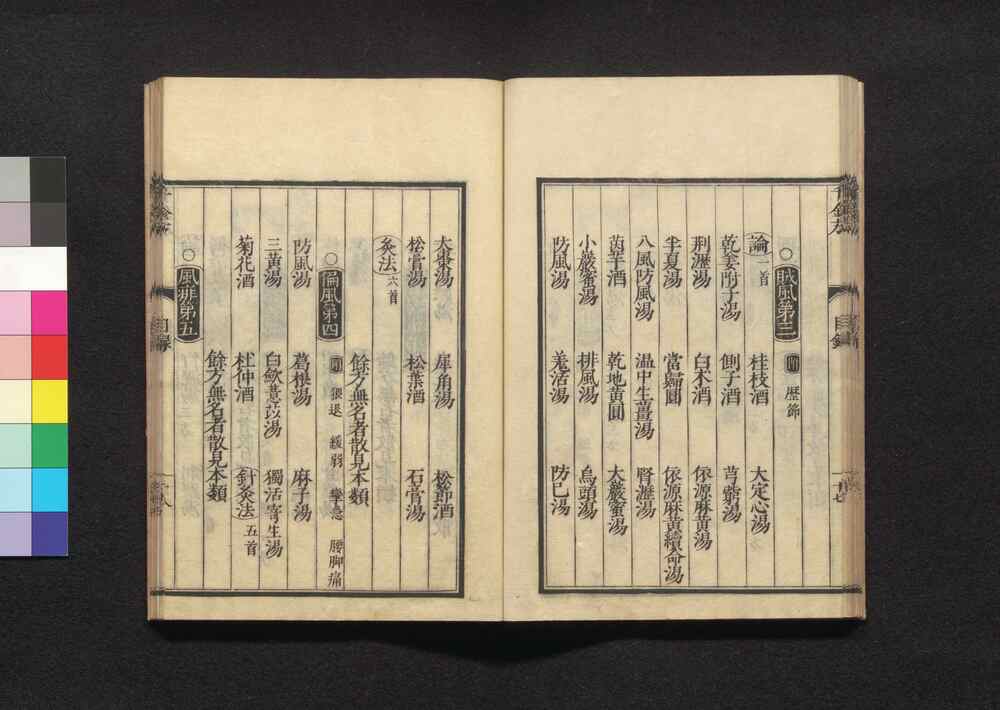 ○賊風第三 附 歷節
論一首 桂枝酒 大定心湯
乾姜附子湯 側子酒 芎藭湯
荊瀝湯 白朮酒 依源麻黃湯
半夏湯 當歸圓 依源麻黃續命湯
八風防風湯 温中生薑湯 腎瀝湯
茵芋酒 乾地黃圓 大巖蜜湯
小巖蜜湯 排風湯 烏頭湯
防風湯 羗活湯 防已湯
大棗湯 犀角湯 松節酒
松膏湯 松葉酒 石膏湯
灸法六首
餘方無名者散見本類
○偏風第四 附 猥退 緩弱 攣急 腰脚痛
防風湯 葛根湯 麻子湯
三黃湯 白歛薏苡湯 獨活寄生湯
菊花酒 杜仲酒 針灸法五首
餘方無名者散見本類
○風痱第五
目録